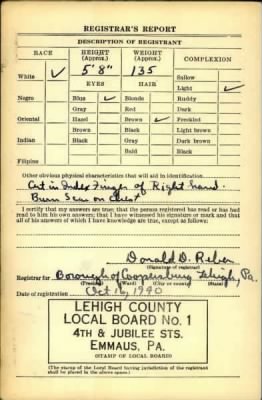 REGISTRAR'S REPORT
DESCRIPTION OF REGISTRANT
RACE HEIGHT (Approx.) WEIGHT (Approx.) COMPLEXION
White ✓ 5' 8" 135 Sallow
EYES HAIR Light ✓
Negro Blue ✓ Blonde Ruddy
Gray Red Dark
Oriental Hazel Brown ✓ Freckled
Brown Black Light brown
Indian Black Gray Dark brown
Bald Black
Filipino
Other obvious physical characteristics that will aid in identification
Cut in Index Finger of Right hand.
Burn Scar on Chest
I certify that my answers are true; that the person registered has read or has had
read to him his own answers; that I have witnessed his signature or mark and that
all of his answers of which I have knowledge are true, except as follows:
Donald D. Reber
(Signature of registrar)
Registrar for Borough of Coopersburg Lehigh, Pa.
(Precinct) (Ward) (City or county) (State)
Date of registration Oct 16, 1940
LEHIGH COUNTY
LOCAL BOARD No. 1
4TH & JUBILEE STS.
EMMAUS, PA.
(STAMP OF LOCAL BOARD)
(The stamp of the Local Board having jurisdiction of the registrant
shall be placed in the above space.)